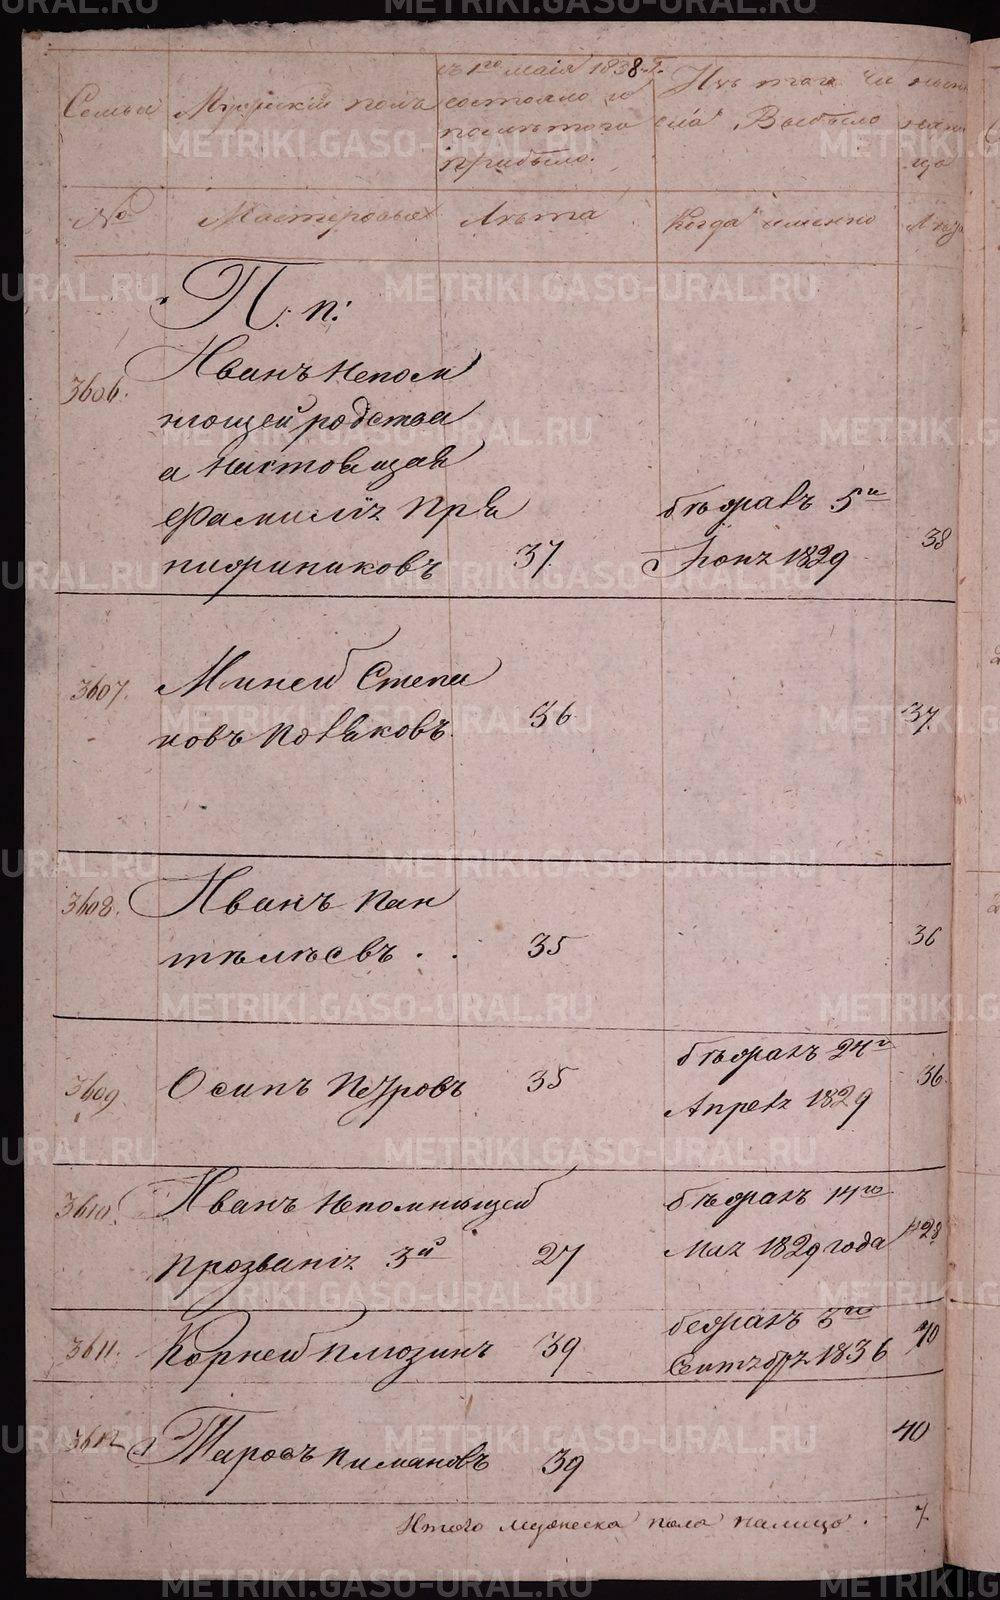 Семьи Мужескiй полъ съ 1го маiя 1838 г. состояло и после того прибыло. Изъ того чи сла Выбыло
№ Мастеровые Лета Когда именно Лета
П: п:
3606. Иванъ Непом
нющей родства
а настоящая
фамилiя Пря
нишниковъ 37. бежалъ 5го Iюня 1829 38
3607. Миней Степа
новъ Поляковъ. 36. 37.
3608. Иванъ Пан
телеевъ . . 35 36
3609 Осипъ Петровъ 35 бежалъ 24го Апреля 1829 36.
3610. Иванъ Непомнющей
Прозванiя 3й 27 бежалъ 14го Мая 1829 года 28
3611. Корней 39 бежалъ 3го Сентября 1836 40
3612 Тарасъ 39 40
Итого мужеска пола налицо . 7.
METRIKI.GASO-URAL.RU